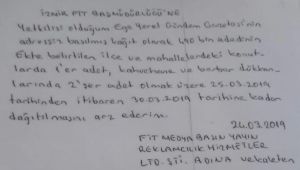 İZMİR PTT BAŞMÜDÜRLÜĞÜ'NE
Yetkilisi olduğum Ege Yerel Gündem Gazetesi'nin
adressiz basılmış kağıt olarak 490 bin adedinin
Ekte belirtilen ilçe ve mahallelerdeki konut-
larda 1'er adet, kahvehane ve berber dükkan-
larında 2'şer adet olmak üzere 25.03.2019
tarihinden itibaren 30.03.2019 tarihine kadar
dağıtılmasını arz ederim.
24.03.2019
FİT MEDYA BASIN YAYIN
REKLAMCILIK HİZMETLER
LTD. ŞTİ. ADINA vekaleten